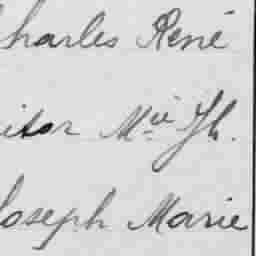 harles René
itor M.ie Jh.
Joseph Marie